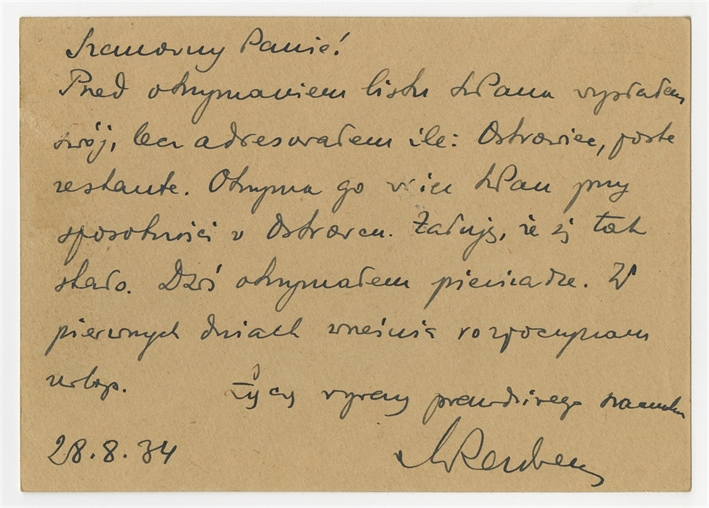 Szanowny Panie!
Przed otrzymaniem listu Pana wysłałem
swój, lecz adresowałem źle: Ostrowiec, poste
restante. Otrzyma go więc Pan przy
sposobności w Ostrowcu. Żałuję, że się tak
stało. Dziś otrzymałem pieniądze. W
pierwszych dniach września rozpoczynam
urlop. Łączę wyrazy prawdziwego szacunku
28.8.34